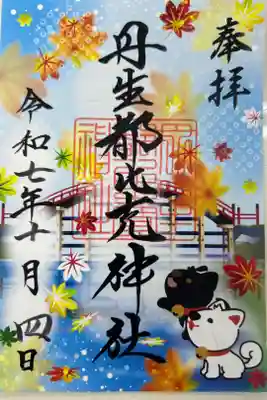 奉拝
丹生都比売神社
令和七年十月四日